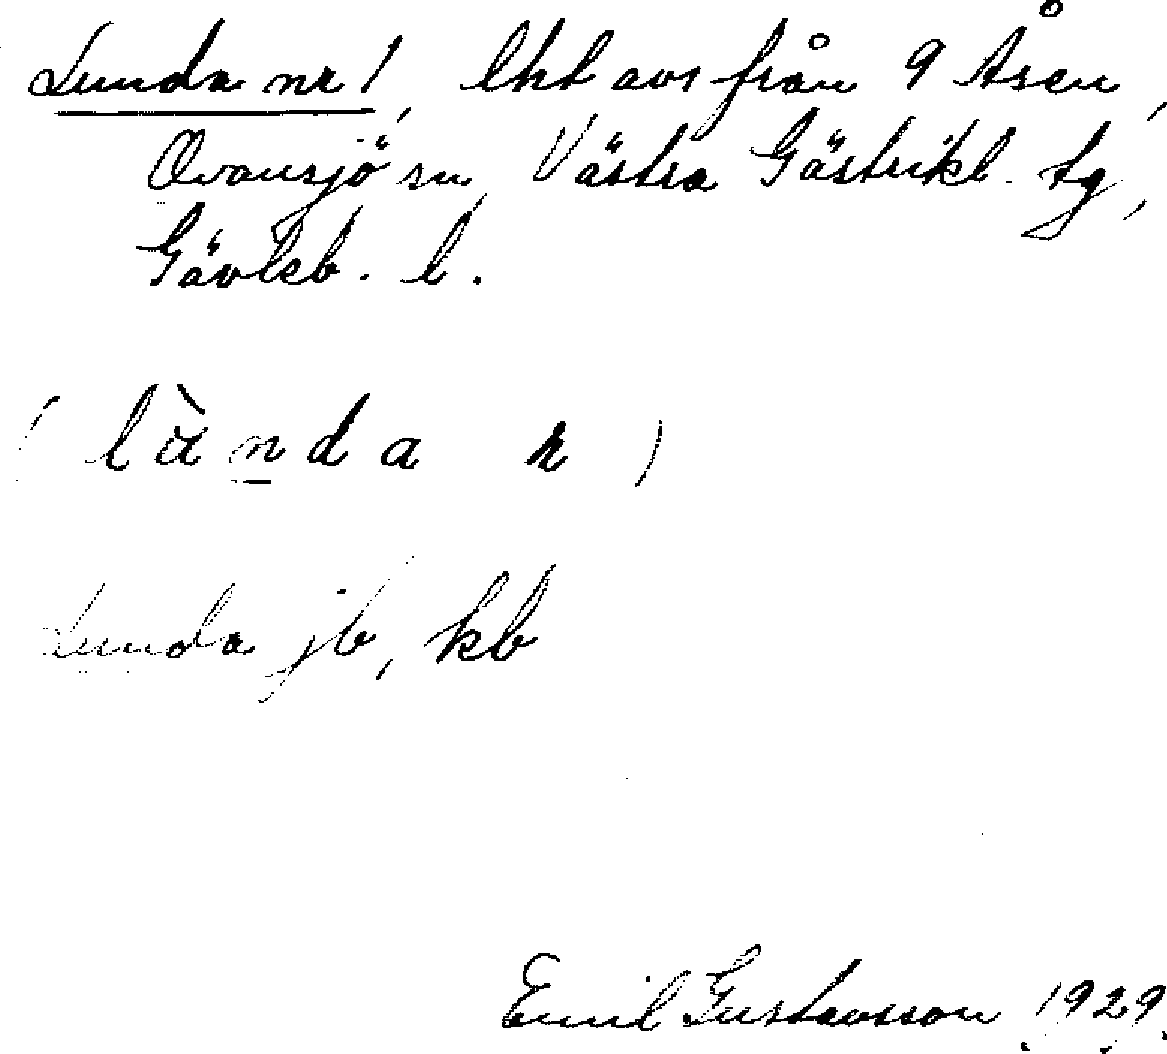 Lunda nr 1, lht avs från 9 Åsen,
Ovansjö sn, Västra Gästrikl. tg,
Gävleb. l.
(lànda r)
Lunda jb, kb
Emil Gustavsson 1929.